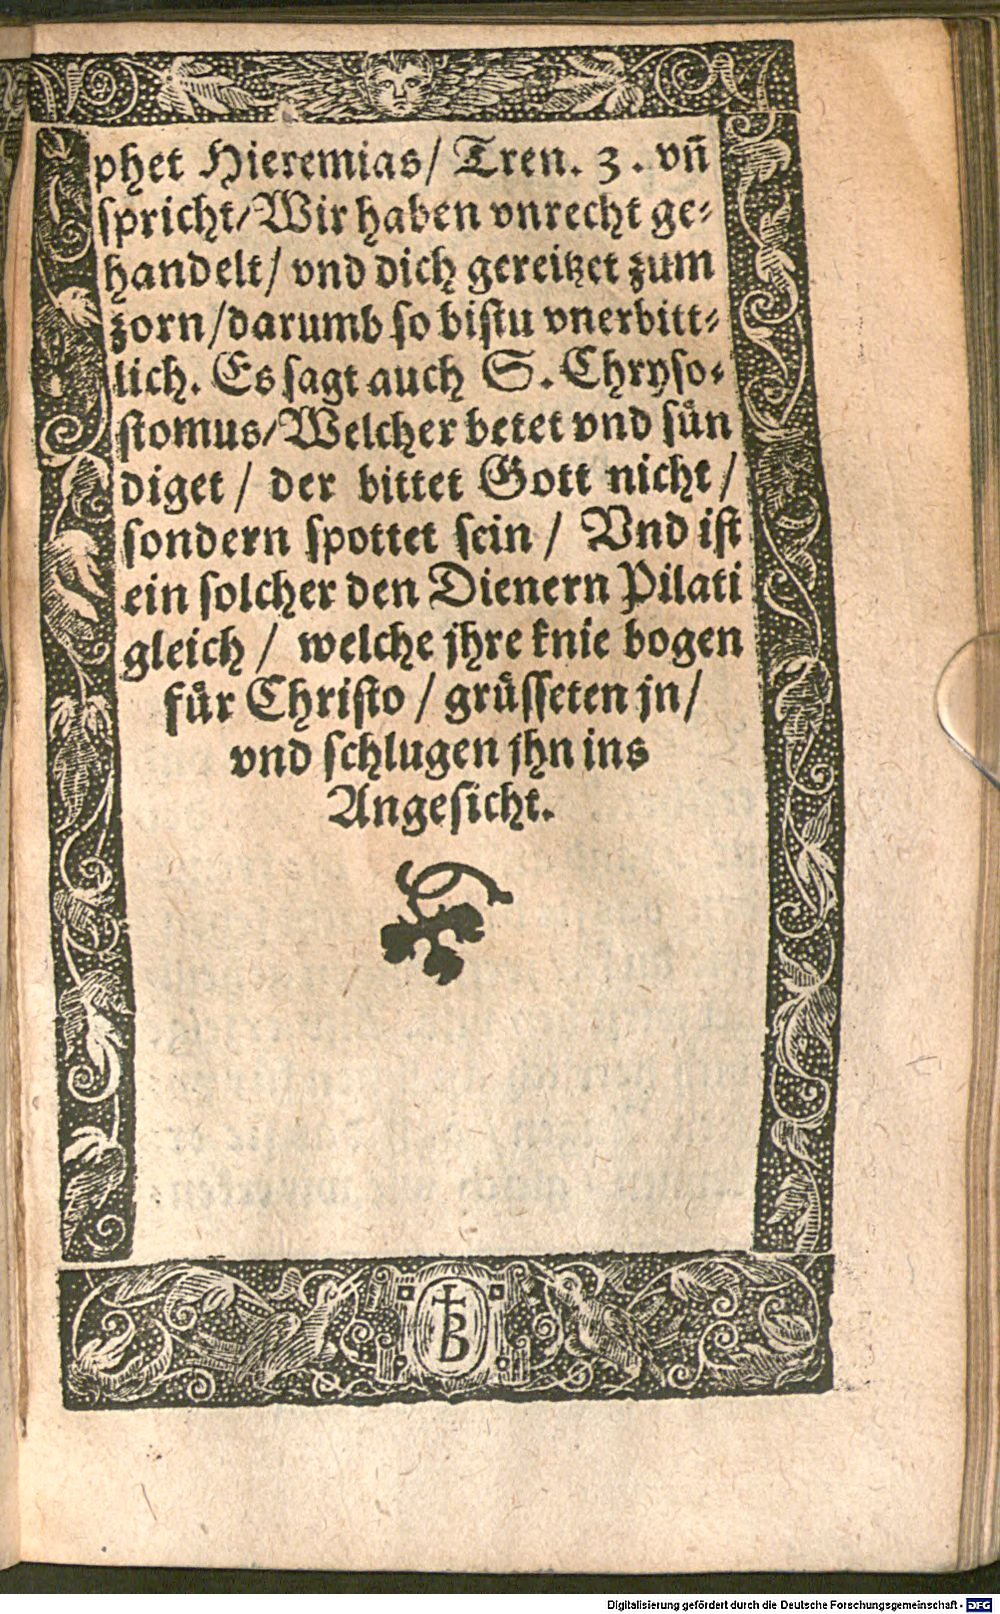 phet Hieremias/ Tren. 3. vn̄
ſpricht/ Wir haben vnrecht ge⸗
handelt/ vnd dich gereitzet zum
zorn/ darumb ſo biſtu vnerbitt⸗
lich. Es ſagt auch S. Chryſo⸗
ſtomus/ Welcher betet vnd ſuͤn
diget/ der bittet Gott nicht/
ſondern ſpottet ſein/ Vnd iſt
ein ſolcher den Dienern Pilati
gleich/ welche jhre knie bogen
fuͤr Chriſto/ gruͤſſeten jn/
vnd ſchlugen jhn ins
Angeſicht.
B
Digitalisierung gefördert durch die Deutsche Forschungsgemeinschaft - DFG